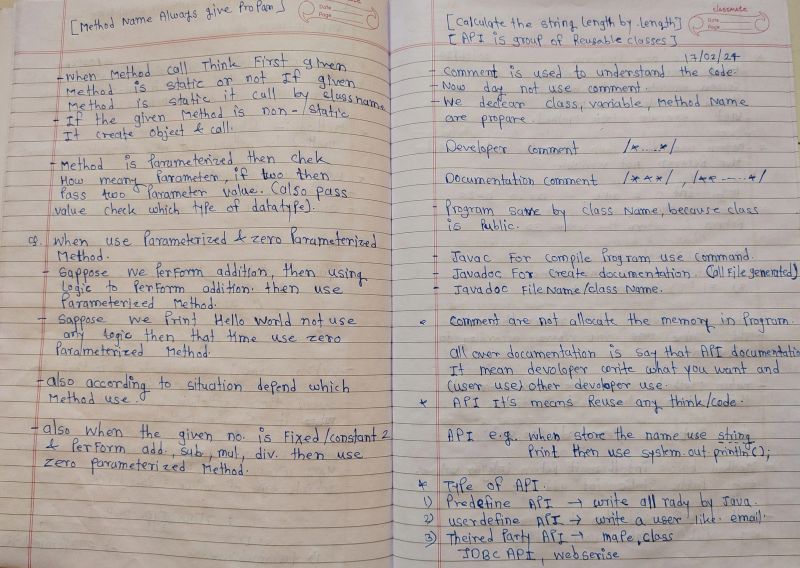 [Method Name Always give Propan]
- When Method call Think First given
Method is static or not If given
Method is static it call by classname
- If the given Method is non-static
It create object & call.
- Method is Parameterized then chek
How meany Parameter, if two then
Pass two Parameter value. (also pass
value check which type of datatype).
Q. When use Parameterized & zero Parameterized
Method.
- Sappose we Perform addition, then using
Logic to Perform addition. then use
Parameterized Method.
- Sappose we Print Hello World not use
any logic then that time use zero
Paralmeterized Method.
- also according to situation depend which
Method use.
- also when the given no. is Fixed/constant 2
& Perform add, sub, mul, div. then use
zero parameterized Method.
classmate
Date
Page
[Calculate the string length by .length]
[API is group of Reusable classes]
17/02/24
- Comment is used to understand the code.
- Now day not use comment.
- We declear class, variable, Method Name
are propare.
Developer comment /*....*/
Documentation comment /***/, /**-----*/
- Program save by class Name, because class
is Public.
- Javac For compile Program use command.
- Javadoc For create documentation. (all File generated)
- Javadoc FileName/class Name.
* Comment are not allocate the memory in Program.
all over documentation is say that API documentatio
It mean devoloper write what you want and
(user use) other devoloper use.
* API It's means Reuse any think/code.
API e.g. when store the name use string
Print then use system.out.println();
* Type of API.
1) Predefine API → write all rady by Java.
2) userdefine API → write a user like email.
3) Theired Party API → class
JDBC API, webserise